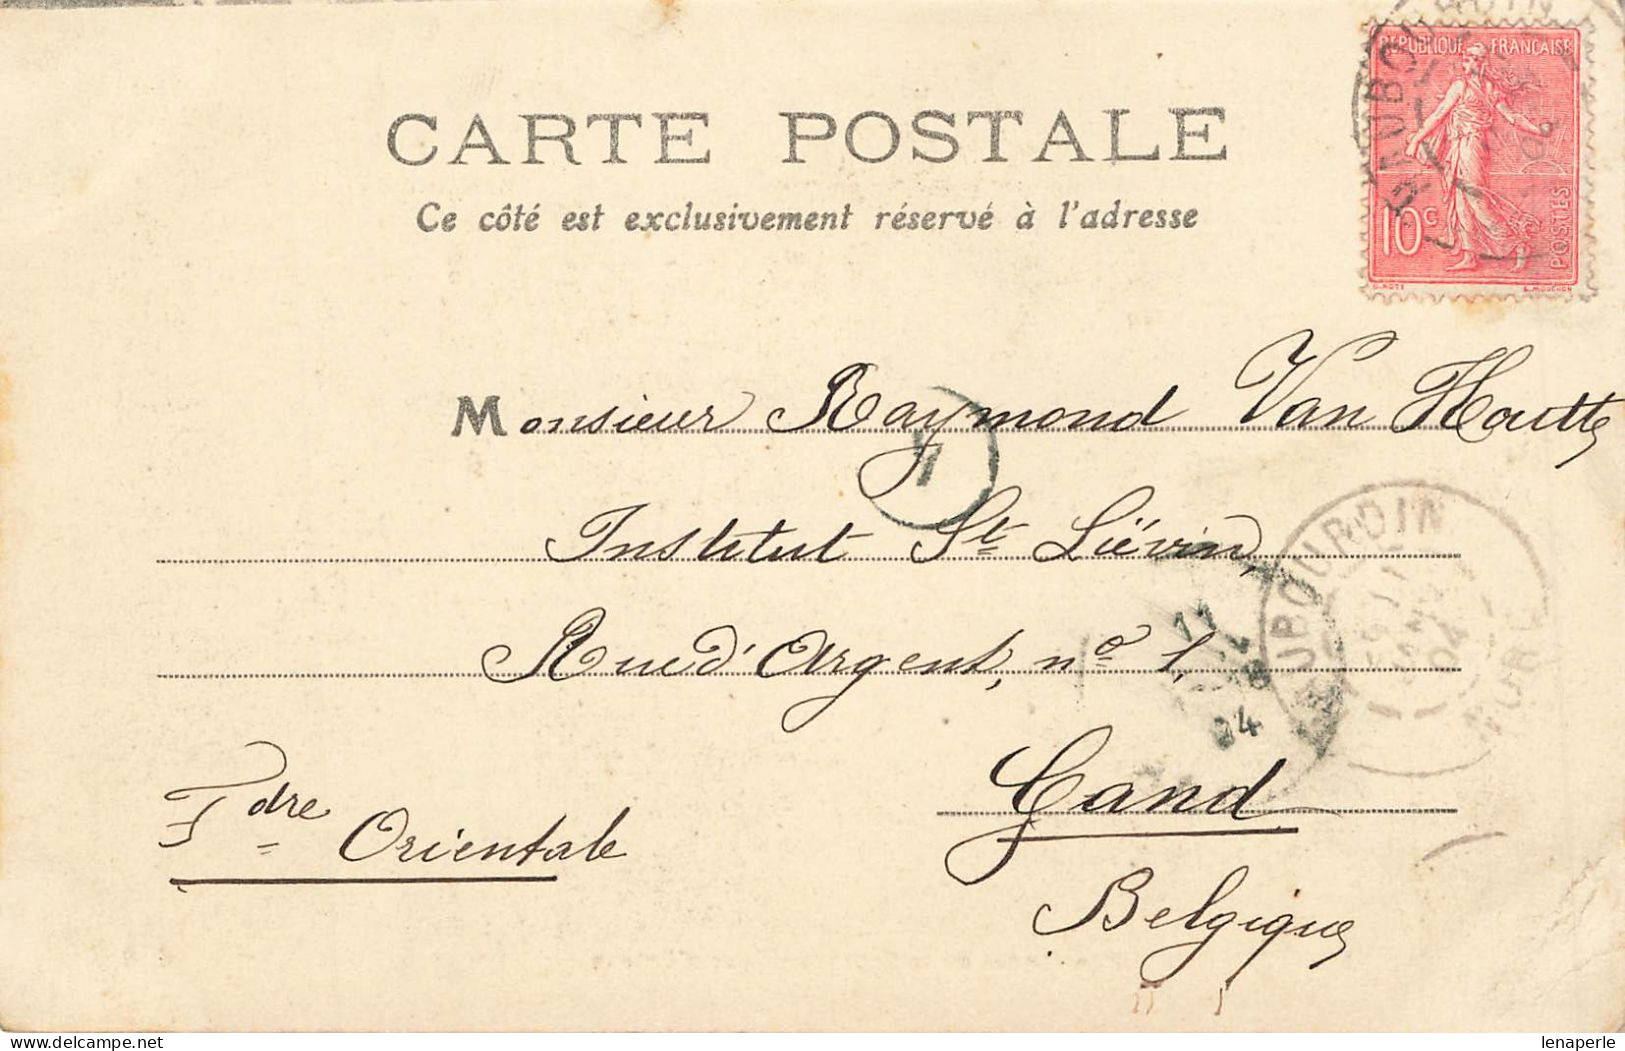 RÉPUBLIQUE FRANÇAISE
10c
POSTES
O. ROTY E. MOUCHON
CARTE POSTALE
Ce côté est exclusivement réservé à l'adresse
Monsieur Raymond Van Houtte
Institut St Liévin,
Rue d'Argent, no 1,
Gand
Belgique
Fdre Orientale
HAUBOURDIN
04
lenaperle